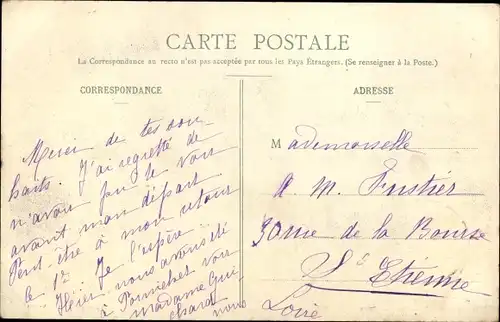 CARTE POSTALE
La Correspondance au recto n'est pas acceptée par tous les Pays Étrangers. (Se renseigner à la Poste.)
CORRESPONDANCE
Merci de tes sou-
haits. J'ai regretté de
n'avoir pu le voir
avant mon départ
Peut-être à mon retour
le 12 Je l'espère
Hier nous avons été
à Pornichet voir
Madame Gui-
chard nous
ADRESSE
Mademoiselle
A. M. Fustier
30 rue de la Bourse
St Etienne
Loire